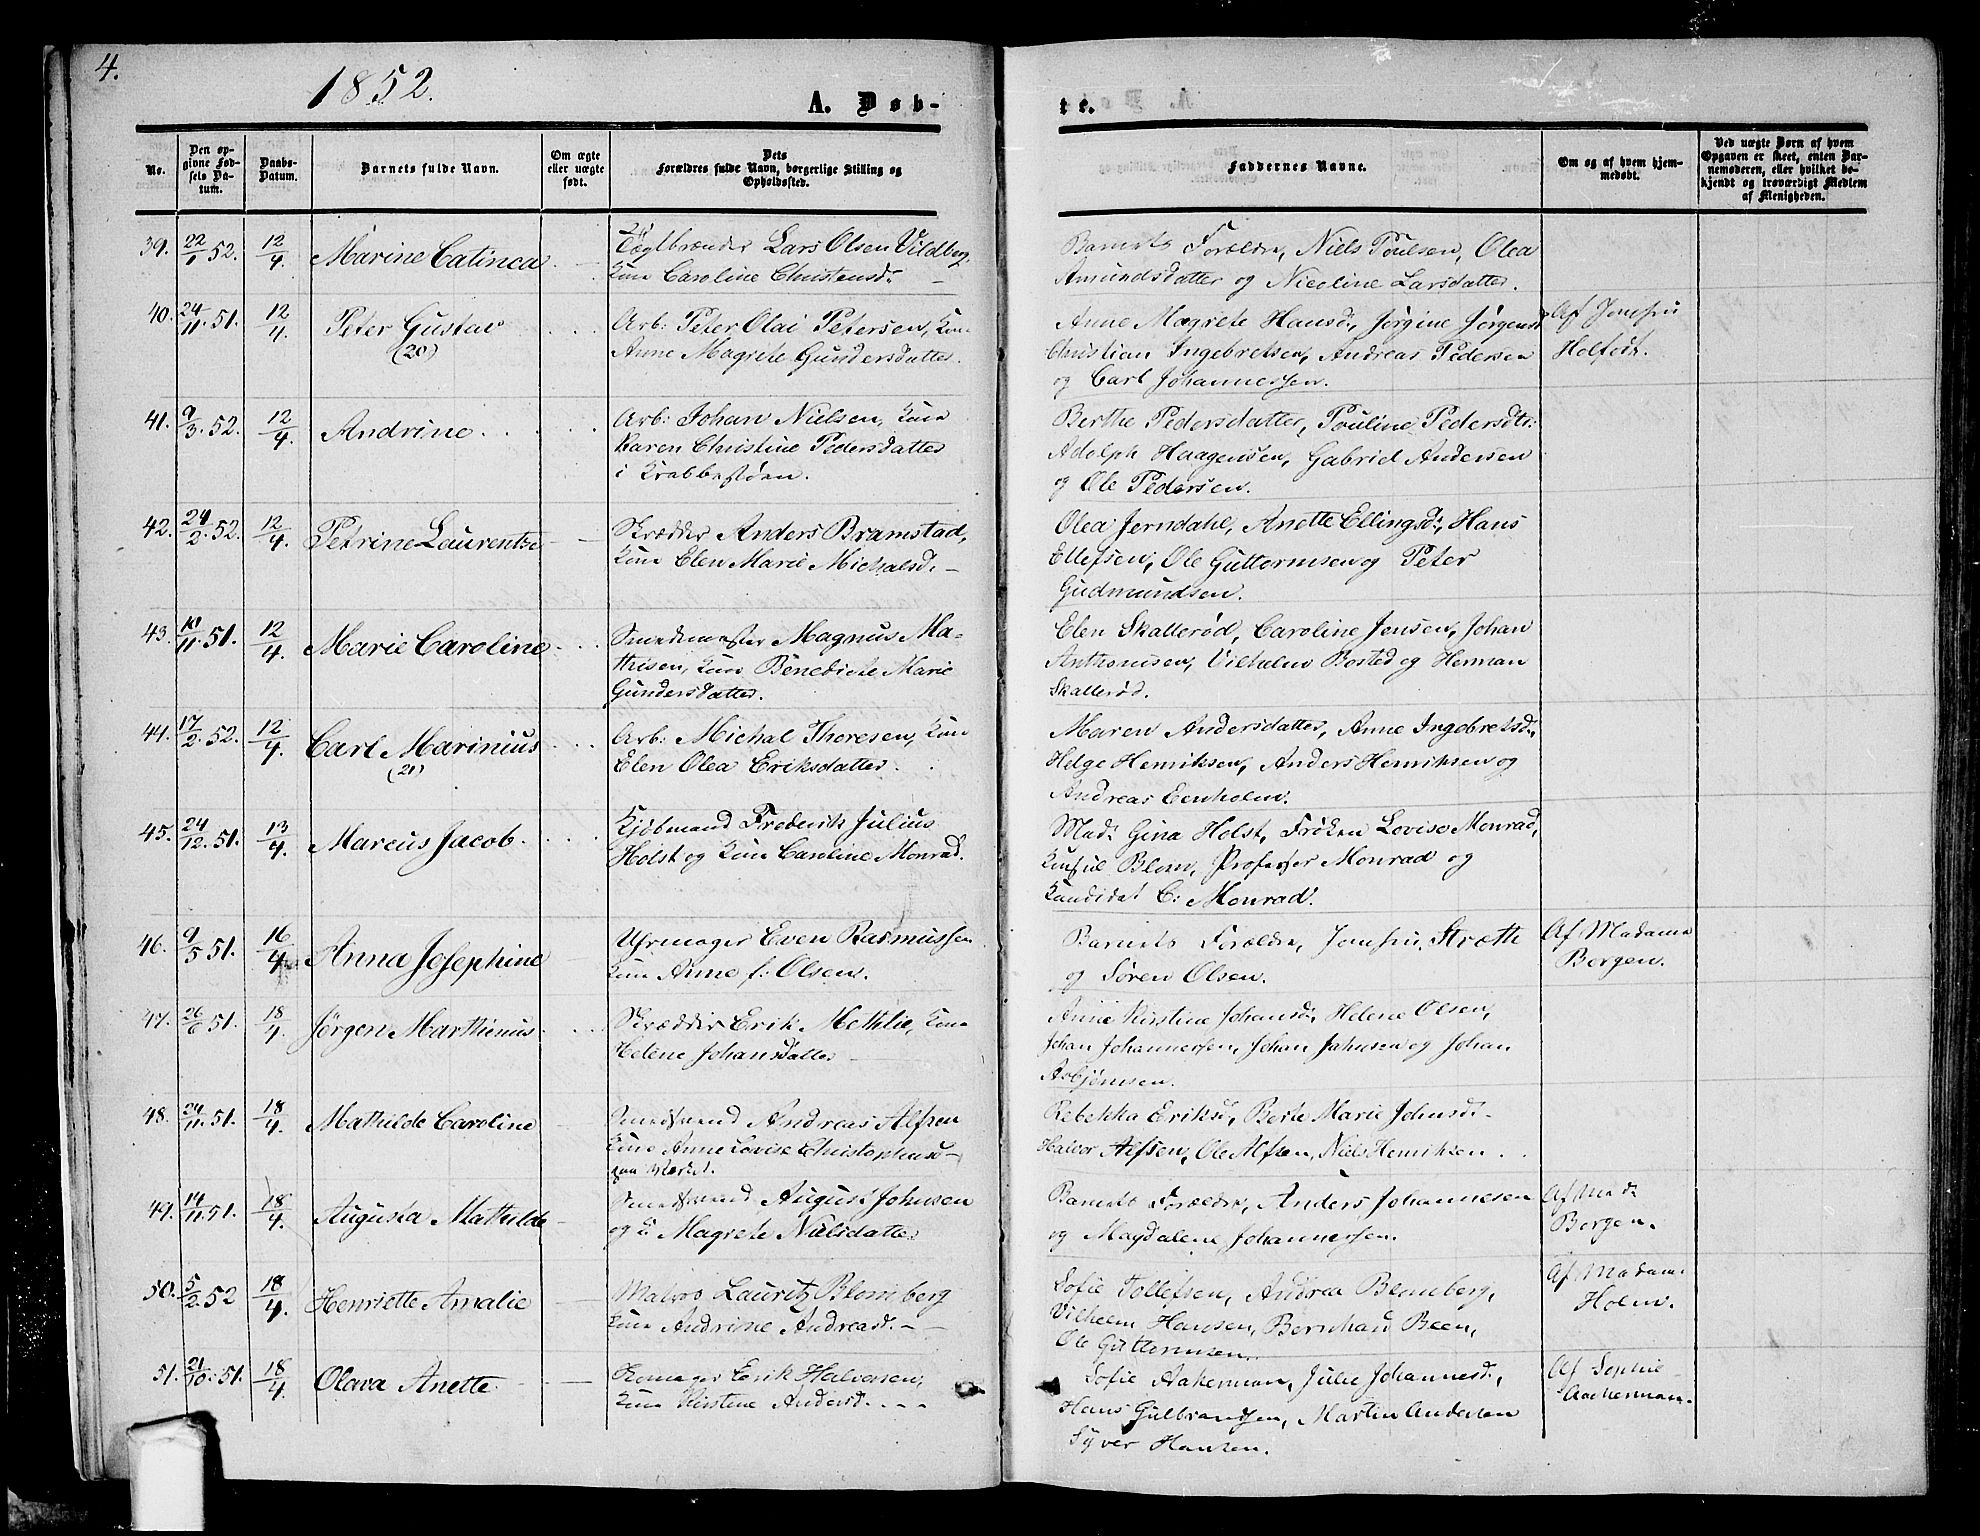 4.
1852.
A. Døb-
te.
No.
Den op-
givne Fød-
sels Da-
tum.
Daabs-
Datum.
Barnets fulde Navn.
Om ægte
eller uægte
født.
Dets
Forældres fulde Navn, borgerlige Stilling og
Opholdssted.
Faddernes Navne.
Om og af hvem hjem-
medøbt.
Ved uægte Børn af hvem
Opgaven er skeet, enten Bar-
nemoderen, eller hvilket be-
kjendt og troværdigt Medlem
af Menigheden.
39. 22/1 52. 12/4. Marine Catinca
Teglbrænder Lars Olsen Vildberg,
Kone Caroline Christensd.
Barnets Forældre, Niels Poulsen, Olea
Amundsdatter og Nicoline Larsdatter.
40. 24/11. 51. 12/4. Peter Gustav
(20)
Arb: Peter Olai Petersen, Kone
Anne Magrete Gundersdatter.
Anne Magrete Hansd:, Jørgine Jørgensd
Christian Ingebretsen, Andreas Pedersen
og Carl Johannessen.
Af Jomfru
Holfodt.
41. 9/3. 52. 12/4. Andrine.
Arb: Johan Nielsen, Kone
Karen Christine Pedersdatter
i Krabbestøen.
Berthe Pedersdatter, Pouline Pedersdtr:
Adolph Haagensen, Gabriel Andersen
og Ole Pedersen.
42. 24/2. 52. 12/4. Petrine Laurentze
Skrædder Anders Bramstad,
Kone Elen Marie Michalsd.
Olea Jerndahl, Anette Ellingsd:, Hans
Ellefsen, Ole Guttormsen og Peter
Gudmundsen.
43. 10/11. 51. 12/4. Marie Caroline
Smedmester Magnus Ma-
thisen, Kone Benedicte Marie
Gundersdatter.
Elen Skallerød, Caroline Jensen, Johan
Anthonisen, Vilhelm Bosted og Herman
Skallerød.
44. 17/2. 52. 12/4. Carl Marinius
(21)
Arb: Michal Thoresen, Kone
Elen Olea Eriksdatter.
Maren Andersdatter, Anne Ingebretsd.,
Helge Henriksen, Anders Henriksen og
Andreas Eenholm.
45. 24/12. 51. 13/4. Marcus Jacob.
Kjøbmand Frederik Julius
Holst og Kone Caroline Monrad.
Mad: Gina Holst, Frøken Lovise Monrad,
Konsul Blom, Professor Monrad og
Kandidat C: Monrad.
46. 9/5 51. 16/4 Anna Josephine
Uhrmager Even Rasmussen
Kone Anne f: Olsen.
Barnets Forældre, Jomfru Stræth
og Søren Olsen.
Af Madame
Borgen.
47. 26/6 51. 18/4. Jørgen Marthinius.
Skrædder Erik Methlie, Kone
Helene Johansdatter
Anne Kirstine Johansd:, Helene Olsen,
Johan Johannessen, Johan Jahnsen og Johan
Asbjørnsen.
48. 24/11. 51. 18/4. Mathilde Caroline
Smedsvend Andreas Alfsen
Kone Anne Lovise Christophersd
paa Værket.
Rebekka Eriksd, Berte Marie Johnsd:
Halvor Alfsen, Ole Alfsen, Niels Henriksen.
49. 14/11. 51. 18/4. Augusta Mathilde
Smedsvend August Johnsen
og K: Magrete Nielsdatter
Barnets Forældre, Anders Johannesen
og Magdalene Johannessen.
Af Mad:
Borgen.
50. 5/2. 52 18/4. Henriette Amalie
Matros Lauritz Blomberg
Kone Andrine Andreasd.
Sofie Tollefsen, Andrea Benneberg,
Vilhelm Hansen, Bernhard Been,
Ole Guttormsen.
Af Madam.
Holm.
51. 21/10. 51. 18/4. Olava Anette.
Skomager Erik Halvorsen,
Kone Kirstine Andersd.
Sofie Aakerman, Julie Johannesd.,
Hans Gulbrandsen, Martin Andersen
Syver Hansen.
Af Sophie
Aackermann.